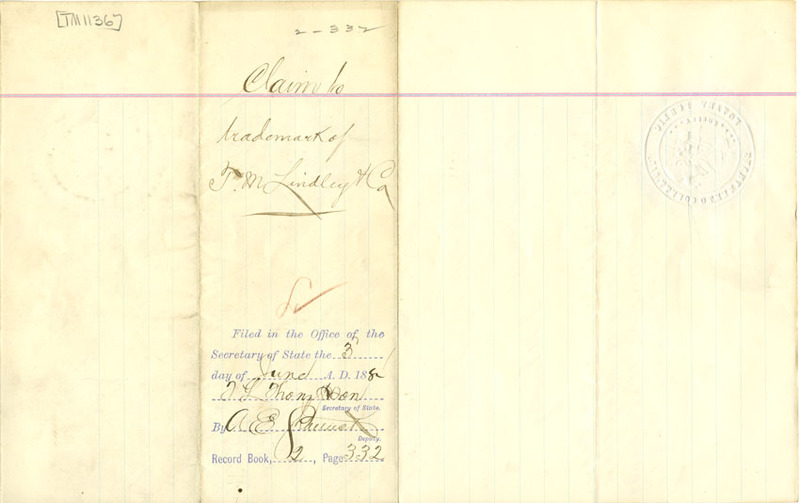 [TM1136]
2-332
Claim to
trademark of
T. M. Lindley & Co
Filed in the Office of the
Secretary of State the 3
day of June A. D. 188
Thompson
Secretary of State.
By A E
Deputy.
Record Book, 2, Page 332
NOTARY PUBLIC